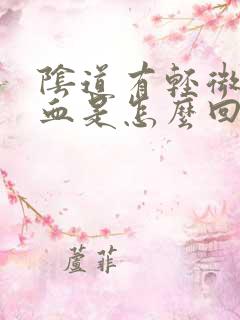 陰道有輕微
血是怎麼回
蘆菲